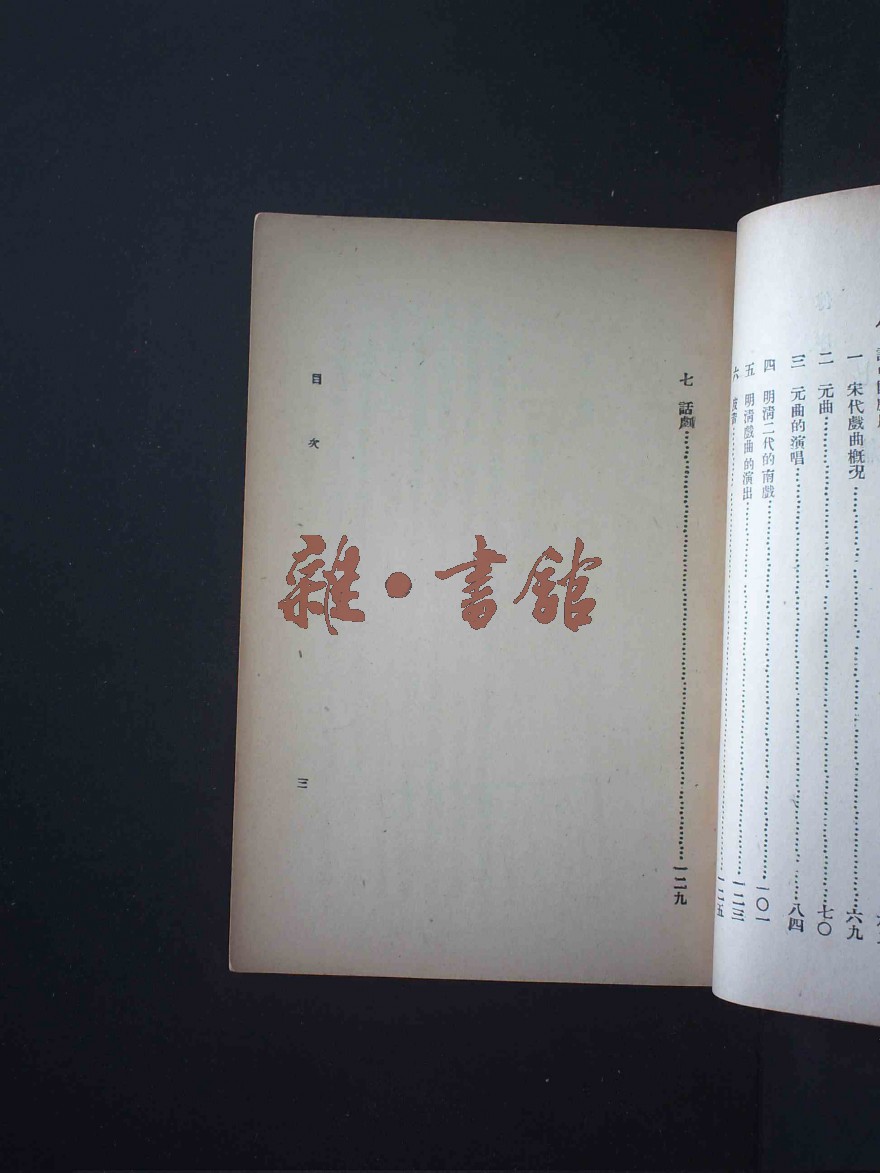 一　宋代戲曲概況……六九
二　元曲……七〇
三　元曲的演唱……八四
四　明淸二代的南戲……一〇一
五　明淸戲曲的演出……一二三
六　……一二五
七　話劇……一二九
目　次
三
雜・書館